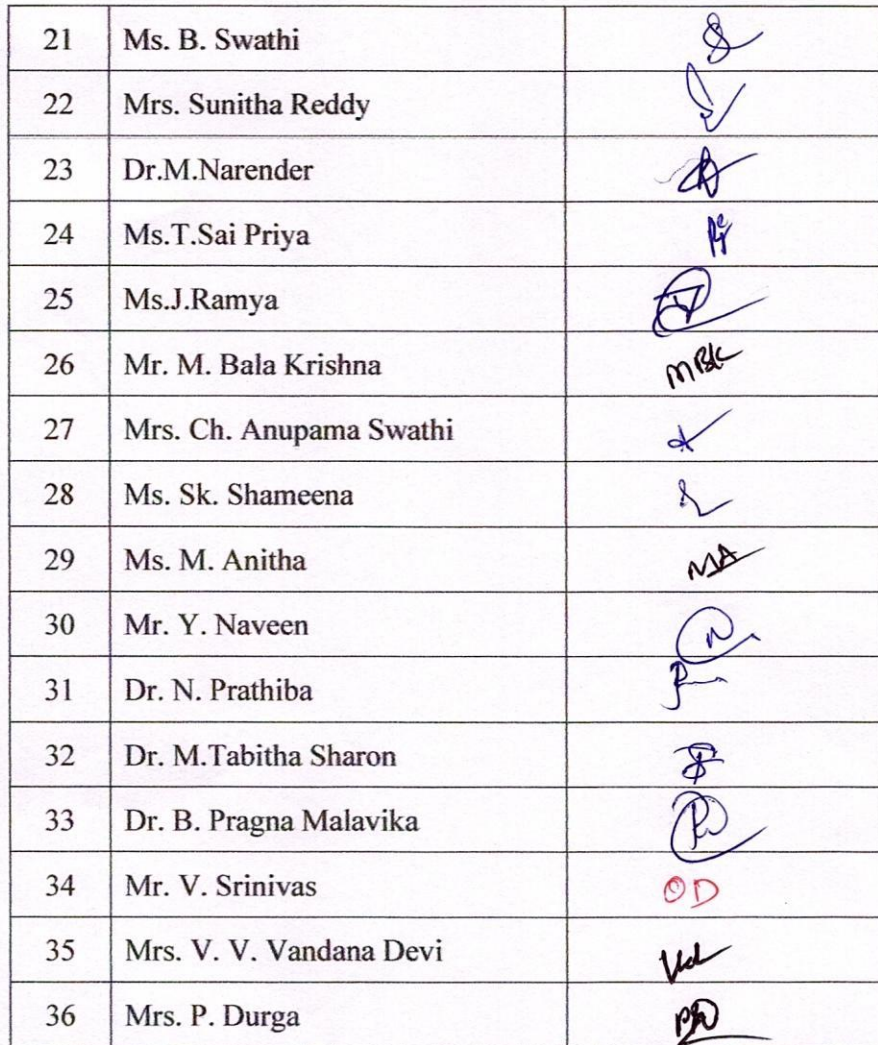 21 Ms. B. Swathi
22 Mrs. Sunitha Reddy
23 Dr.M.Narender
24 Ms.T.Sai Priya
25 Ms.J.Ramya
26 Mr. M. Bala Krishna MBK
27 Mrs. Ch. Anupama Swathi
28 Ms. Sk. Shameena
29 Ms. M. Anitha MA
30 Mr. Y. Naveen N
31 Dr. N. Prathiba
32 Dr. M.Tabitha Sharon
33 Dr. B. Pragna Malavika
34 Mr. V. Srinivas OD
35 Mrs. V. V. Vandana Devi
36 Mrs. P. Durga